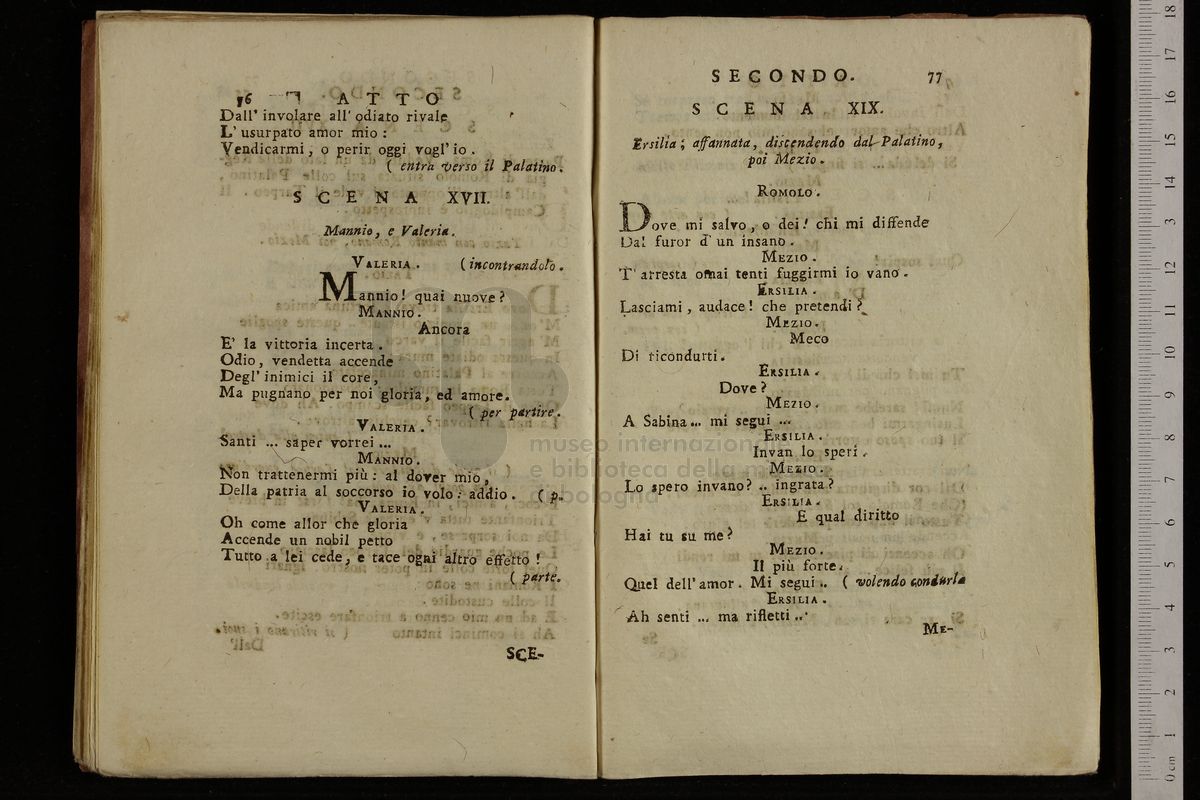 76 ATTO
Dall' involare all' odiato rivale
L' usurpato amor mio :
Vendicarmi, o perir oggi vogl' io .
( entra verso il Palatino.
SCENA XVII.
Mannio, e Valeria.
VALERIA . (incontrandolo .
Mannio! quai nuove ?
MANNIO.
Ancora
E' la vittoria incerta .
Odio, vendetta accende
Degl' inimici il core,
Ma pugnano per noi gloria, ed amore.
( per partire.
VALERIA .
Santi ... saper vorrei ...
MANNIO.
Non trattenermi più : al dover mio,
Della patria al soccorso io volo : addio . ( p.
VALERIA .
Oh come allor che gloria
Accende un nobil petto
Tutto a lei cede, e tace ogni altro effetto !
( parte.
SCE-
SECONDO. 77
SCENA XIX.
Ersilia ; affannata, discendendo dal Palatino,
poi Mezio .
ROMOLO .
Dove mi salvo, o dei! chi mi diffende
Dal furor d' un insano .
MEZIO .
T' arresta omai tenti fuggirmi io vano .
ERSILIA .
Lasciami, audace! che pretendi ?
MEZIO.
Meco
Di ricondurti.
ERSILIA .
Dove ?
MEZIO .
A Sabina... mi segui ...
ERSILIA .
Invan lo speri .
MEZIO .
Lo spero invano? .. ingrata ?
ERSILIA .
E qual diritto
Hai tu su me ?
MEZIO .
Il più forte.
Quel dell' amor. Mi segui .. ( volendo condurla
ERSILIA .
Ah senti ... ma rifletti ...
ME-
museo internazionale
e biblioteca della musica
di bologna
0 cm 1 2 3 4 5 6 7 8 9 10 11 12 13 14 15 16 17 18